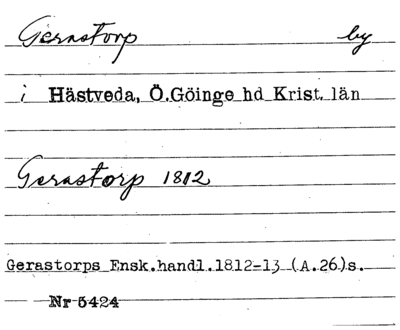 Gerastorp by
i Hästveda, Ö.Göinge hd Krist. län
Gerastorp 1812
Gerastorps Ensk.handl.1812-13 (A.26)s.
Nr 5424